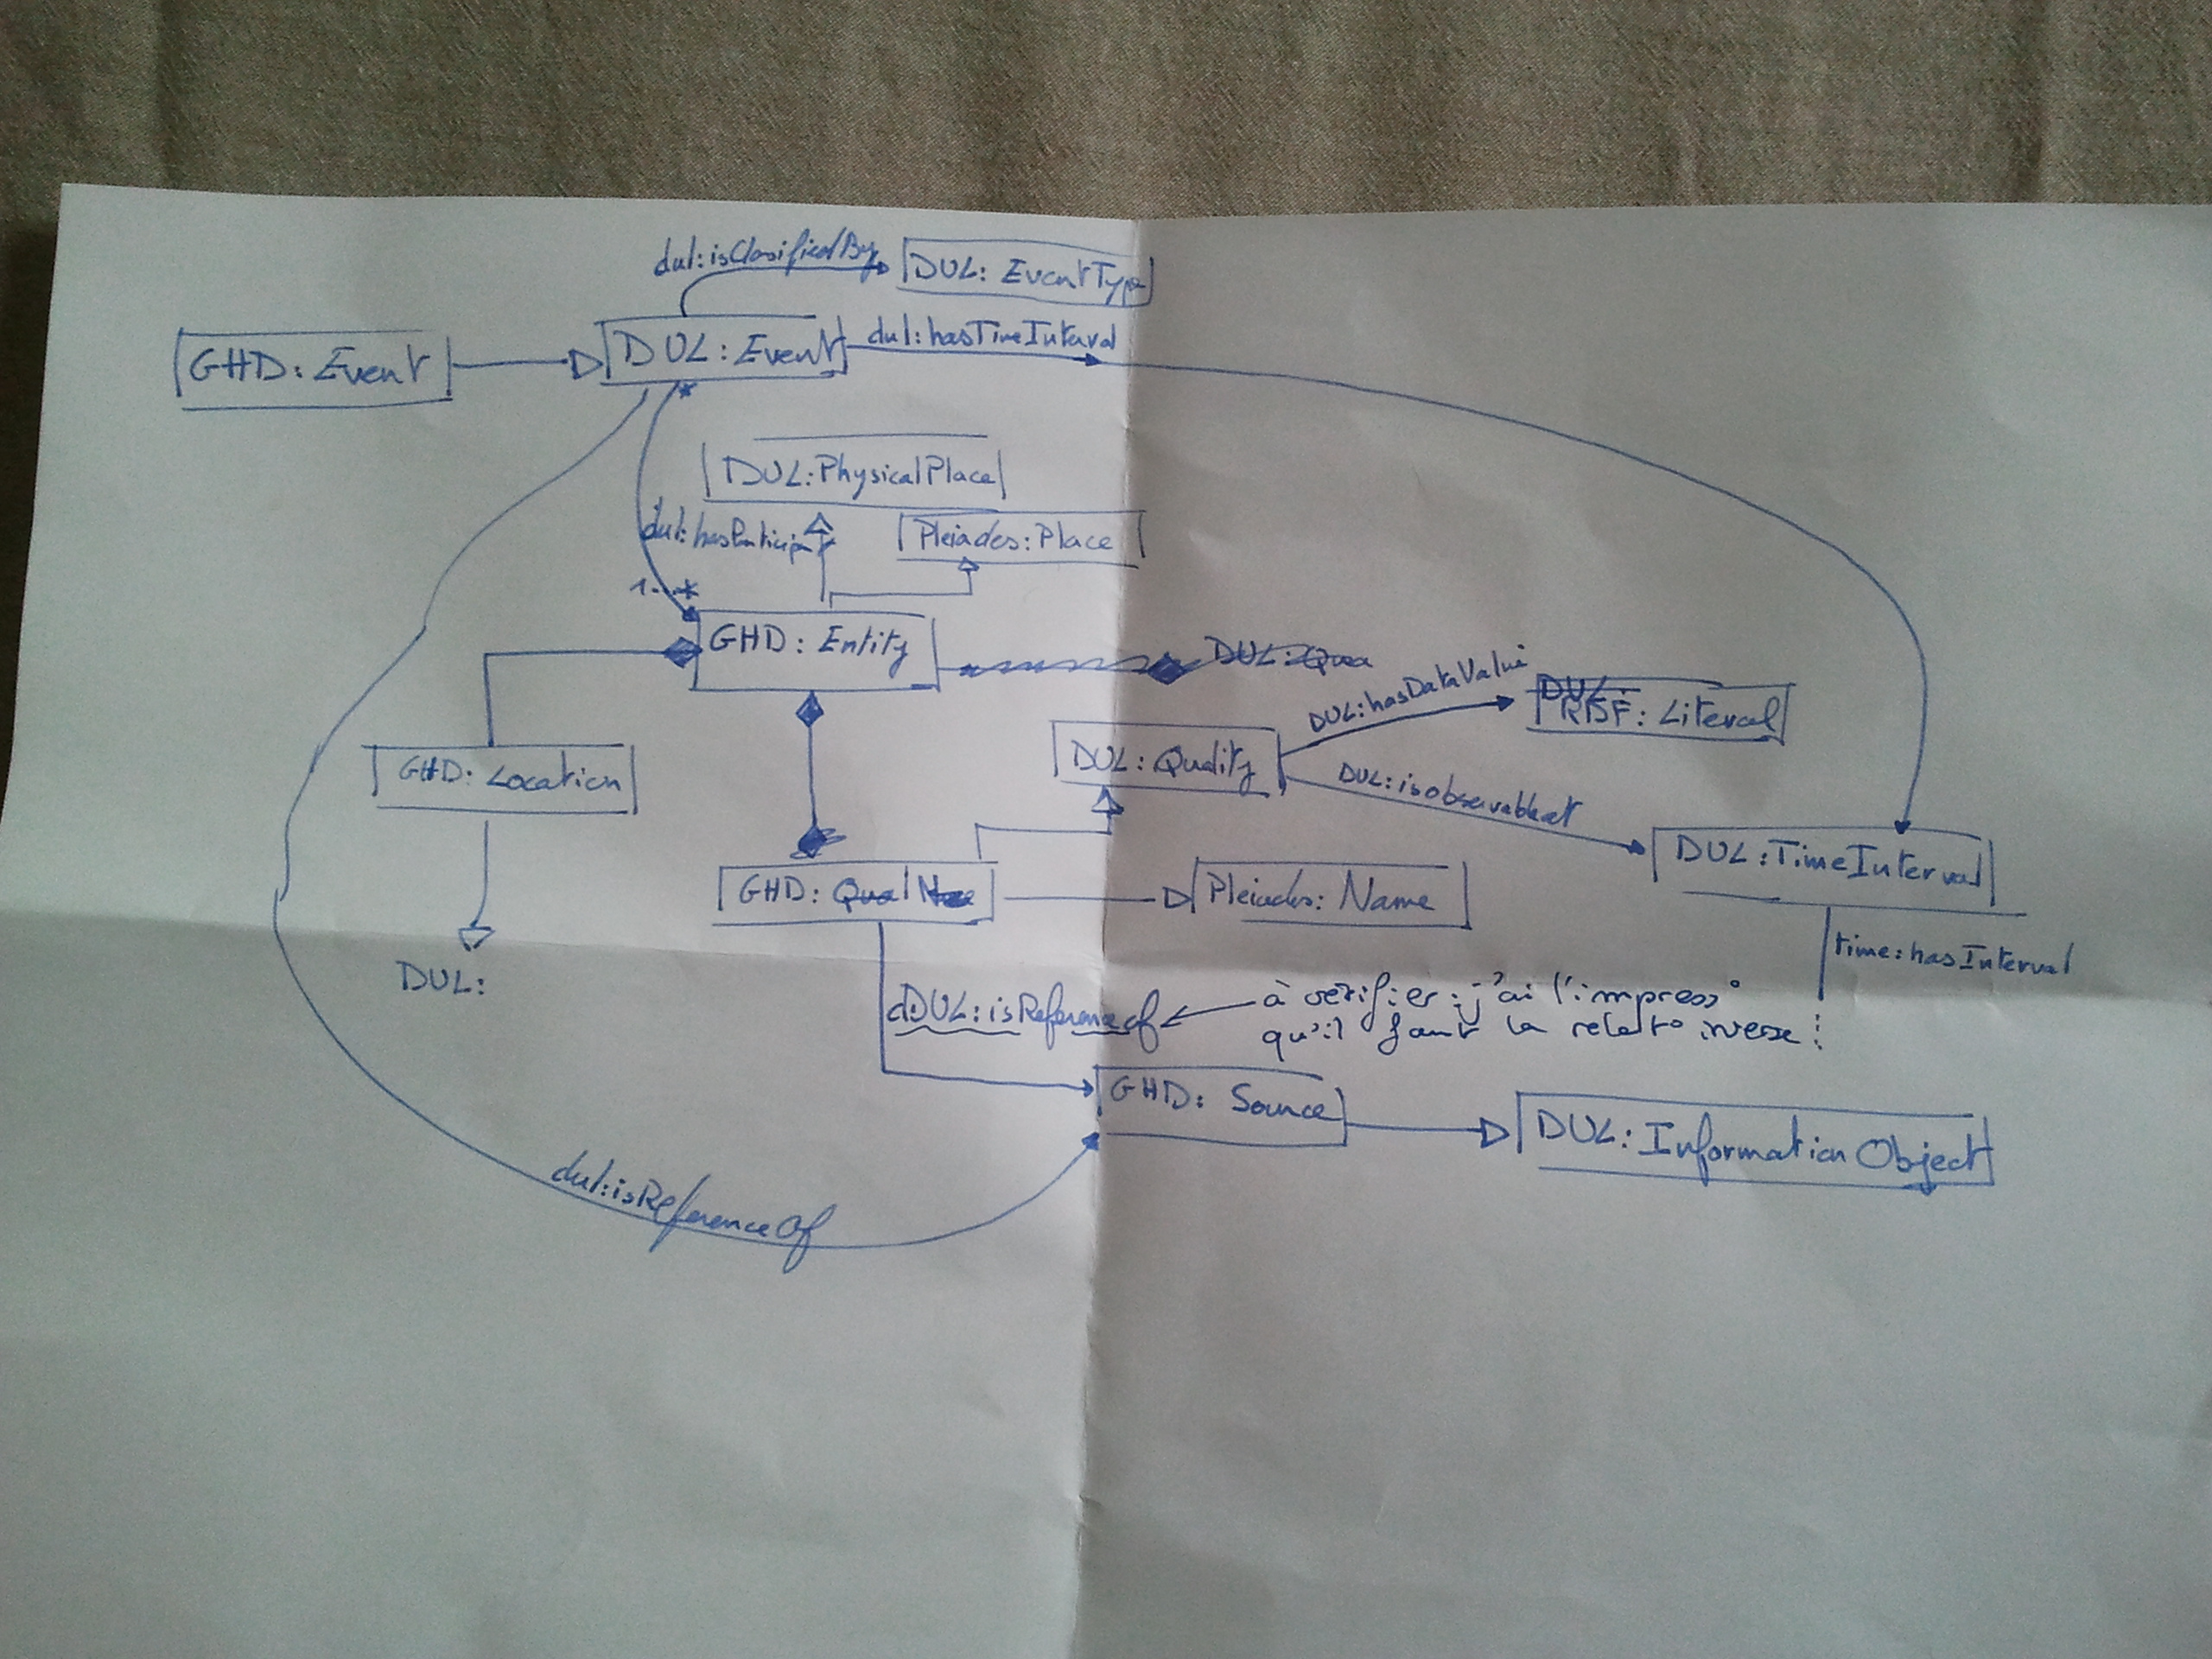 dul:isClasifiedBy
DUL: EventType
GHD: Event
DUL: Event
dul:hasTimeInterval
*
DUL:PhysicalPlace
dul:hasParticip
Pleiades:Place
1...*
GHD: Entity
DUL: Qua
DUL:hasDataValue
DUL:
RDF: Literal
GHD: Location
DUL: Quality
DUL:isobservableat
DUL:TimeInterval
GHD: Qual
Pleiades: Name
DUL:
time:hasInterval
dDUL:isReferenceOf
à vérifier: j'ai l'impress°
qu'il faut la relat° inverse
GHD: Source
DUL: Information Object
dul:isReferenceOf